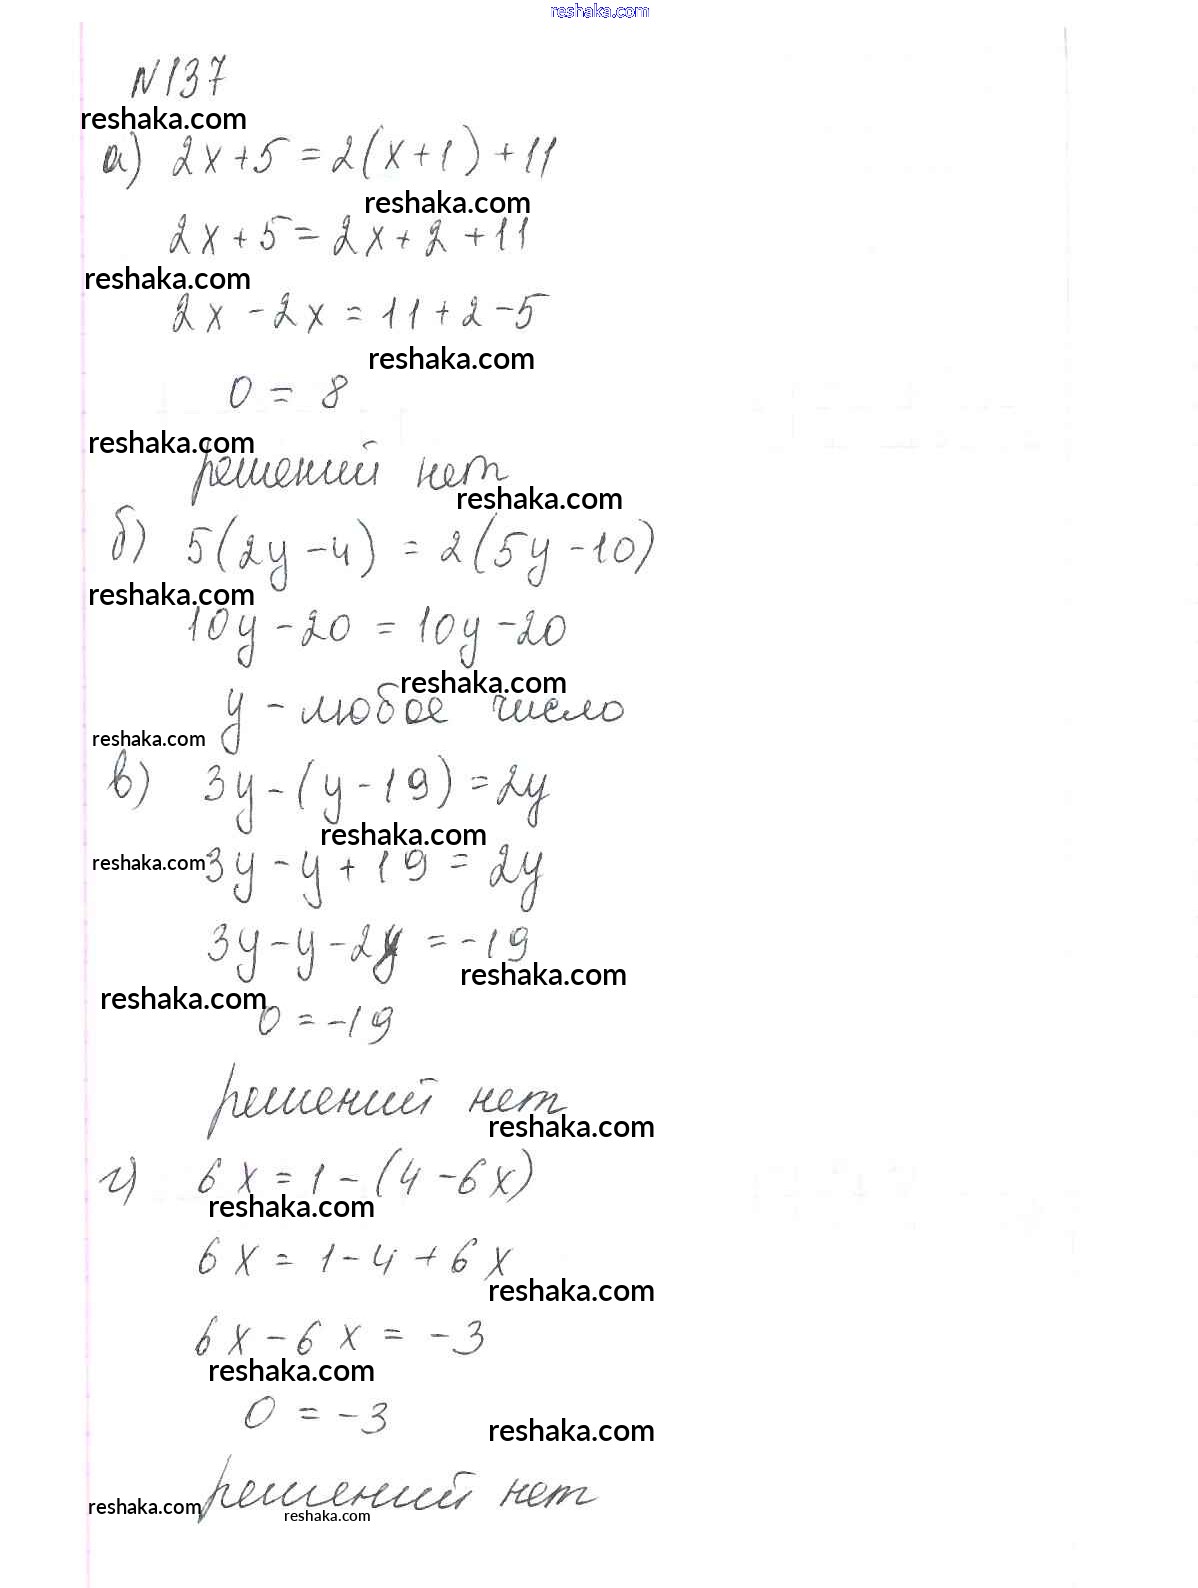 reshaka.com
N137
reshaka.com
а) 2x+5=2(x+1)+11
reshaka.com
2x+5=2x+2+11
reshaka.com
2x-2x=11+2-5
reshaka.com
0=8
reshaka.com
решений нет
reshaka.com
б) 5(2y-4)=2(5y-10)
reshaka.com
10y-20=10y-20
reshaka.com
y-любое число
reshaka.com
в) 3y-(y-19)=2y
reshaka.com
reshaka.com
3y-y+19=2y
3y-y-2y=-19
reshaka.com
reshaka.com
0=-19
решений нет
reshaka.com
г) 6x=1-(4-6x)
reshaka.com
6x=1-4+6x
reshaka.com
6x-6x=-3
reshaka.com
0=-3
reshaka.com
решений нет
reshaka.com
reshaka.com